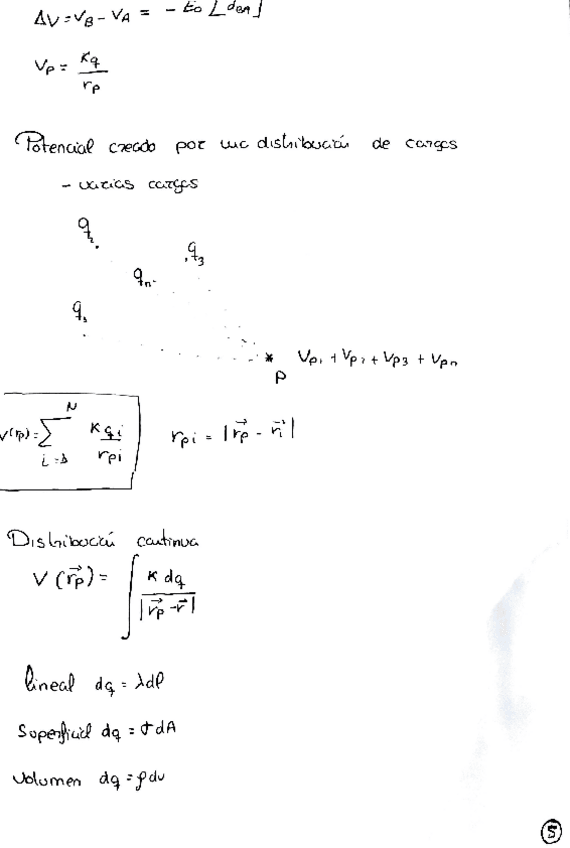 ΔV = V_B - V_A = - E_0 [d_BA]
V_P = Kq / r_P
Potencial creado por una distribución de cargas
- varias cargas
q_2
q_3
q_n
q_1
P
V_P1 + V_P2 + V_P3 + V_Pn
V(r_P) = ∑_{i=1}^{N} K q_i / r_Pi
r_Pi = |r⃗_P - r⃗_i|
Distribución continua
V(r⃗_P) = ∫ K dq / |r⃗_P - r⃗|
lineal dq = λdl
Superficial dq = σdA
Volumen dq = ρdv
5